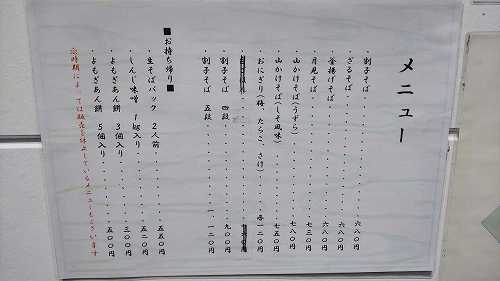 メニュー
・割子そば・・・・・・・・・・六八〇円
・ざるそば・・・・・・・・・・六八〇円
・釜揚げそば・・・・・・・・・六八〇円
・月見そば・・・・・・・・・・七三〇円
・山かけそば(うずら)・・・・七八〇円
・山かけそば(しそ風味)・・・七五〇円
・おにぎり(梅、たらこ、さけ)・・各一二〇円
・割子そば 四段・・・・・・・九〇〇円
・割子そば 五段・・・・・・一、一二〇円
■お持ち帰り■
・生そばパック 2人前・・・・五五〇円
・しんじ味噌 1個入り・・・・五二〇円
・よもぎあん餅 3個入り・・・三〇〇円
・よもぎあん餅 5個入り・・・五〇〇円
※時期によっては販売を休止しているメニューもございます